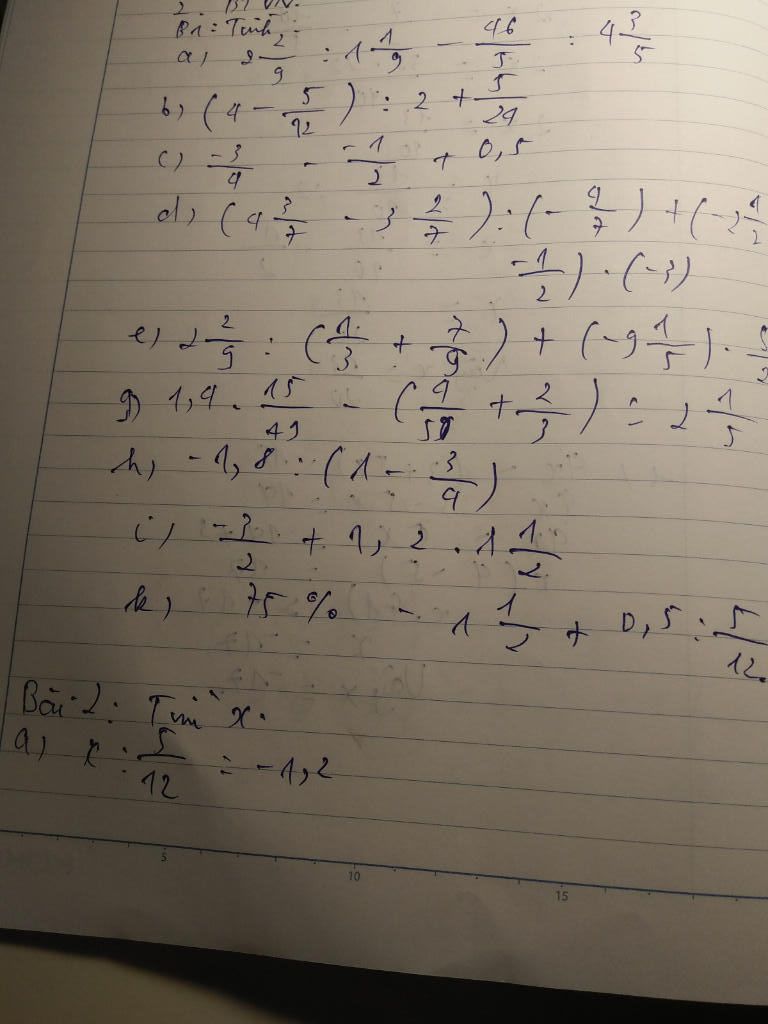 2. BT VN.
B1: Tính:
a, 2 2/9 : 1 1/9 - 46/5 : 4 3/5
b, (4 - 5/12) : 2 + 5/24
c) -3/4 - -1/2 + 0,5
d, (4 3/7 - 3 2/7) : (- 4/7) + (-2 1/2
-1/2) . (-3)
e) 2 2/9 : (1/3 + 7/9) + (-9 1/5) .
g) 1,4 . 15/49 - (4/5 + 2/3) : 2 1/5
h, -1,8 : (1 - 3/4)
i, -3/2 + 1,2 . 1 1/2
k, 75% - 1 1/2 + 0,5 : 5/12.
Bài 2: Tìm x.
a, x : 5/12 = -1,2
5 10 15